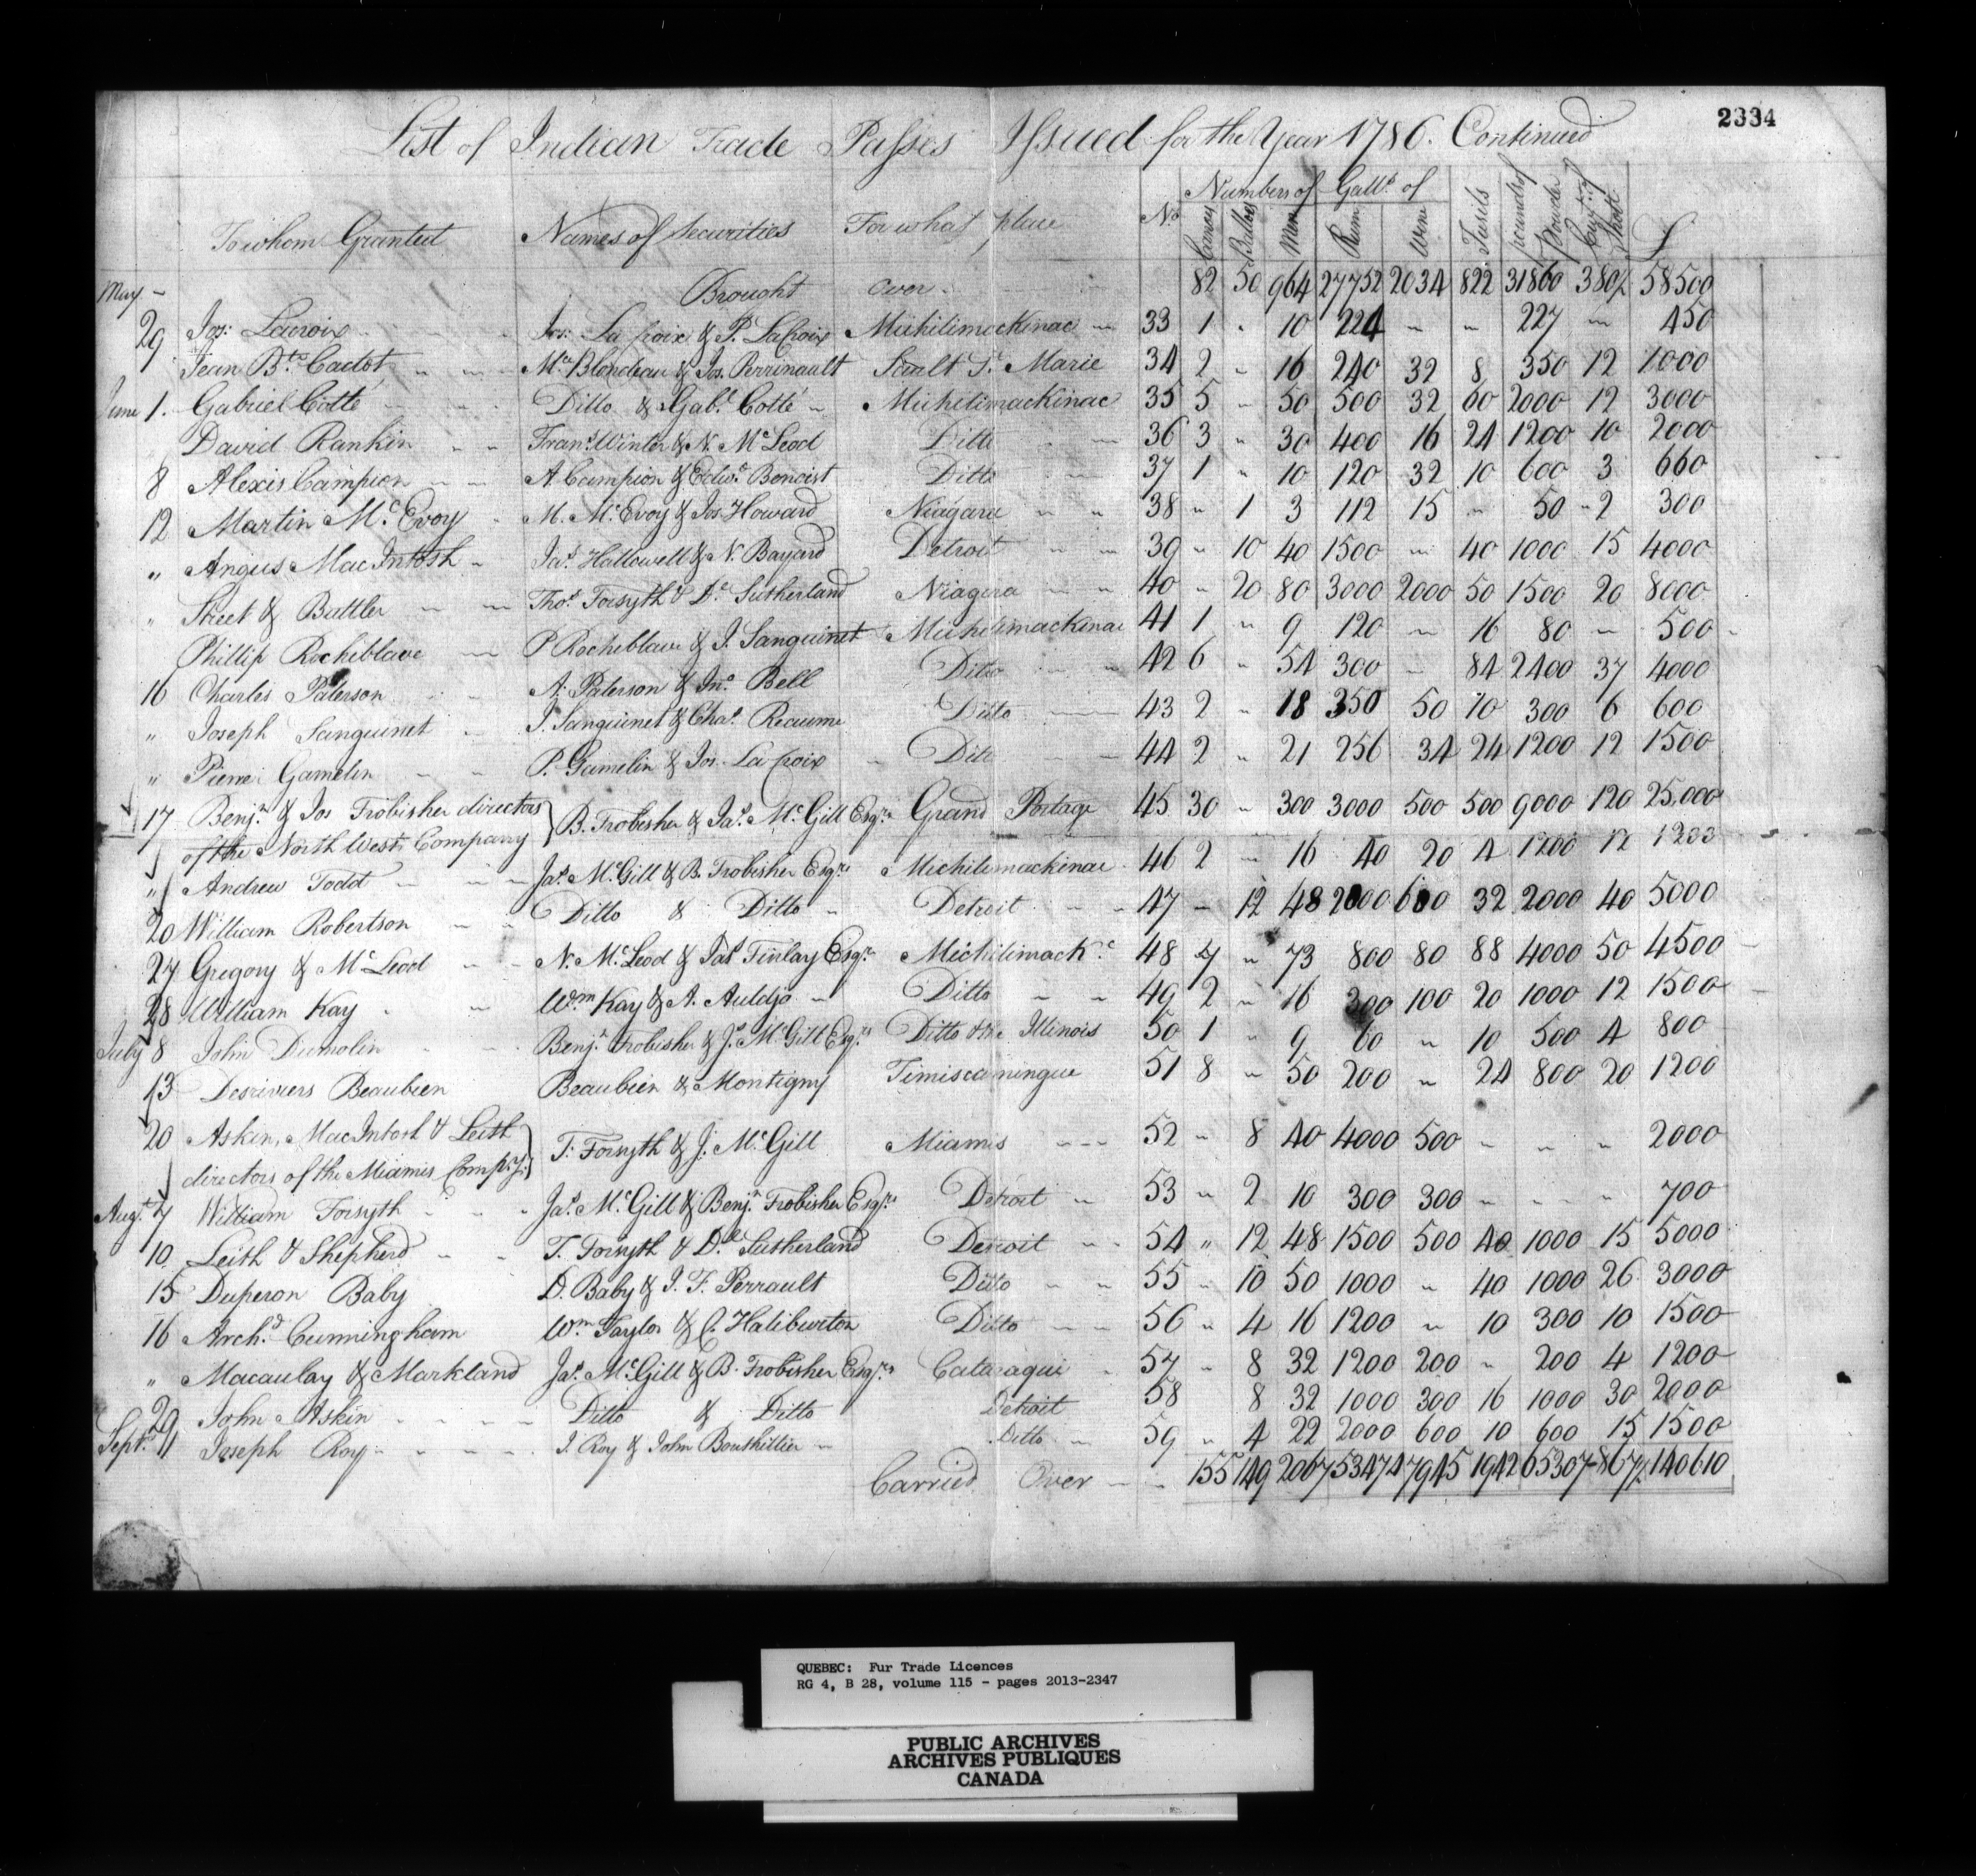 2334
List of Indian Trade Passes Issued for the Year 1786. Continued
To whom Granted Names of Securities For what place No. Numbers of Canoes Battoes Men Galls. of Rum Wine Fusils pounds of Powder Cwt. of Shott £
May – Brought over 82 50 964 27752 2034 822 31860 380½ 58500
29 Jos: Lacroix Jos: La Croix & P. LaCroix Michilimackinac 33 1 " 10 224 " " 227 " 450
Jean Bte. Cadot Mce. Blondeau & Jos. Perrinault Sault St. Marie 34 2 " 16 240 32 8 350 12 1000
June 1. Gabriel Cotté Ditto & Gabl. Cotté Michilimackinac 35 5 " 50 500 32 60 2000 12 3000
David Rankin Frans. Winter & N. McLeod Ditto 36 3 " 30 400 16 24 1200 10 2000
8 Alexis Campion A Campion & Edwd. Benoist Ditto 37 1 " 10 120 32 10 600 3 660
12 Martin McEvoy M. McEvoy & Jos. Howard Niagara 38 " 1 3 112 15 " 50 " 2 300
" Angus MacIntosh Jas. Hallowell & N. Bayard Detroit 39 " 10 40 1500 " 40 1000 15 4000
" Street & Buttler Thos. Forsyth & D. Sutherland Niagara 40 " 20 80 3000 2000 50 1500 20 8000
Phillip Rocheblave P Rocheblave & J. Sanguinet Michilimackinac 41 1 " 9 120 " 16 80 " 500
16 Charles Paterson A. Paterson & Jno. Bell Ditto 42 6 " 54 300 " 84 2400 37 4000
" Joseph Sanguinet J. Sanguinet & Chas. Reaume Ditto 43 2 " 18 350 50 10 300 6 600
" Pierre Gamelin P. Gamelin & Jos. La Croix Ditto 44 2 " 21 256 34 24 1200 12 1500
17 Benjn. & Jos Frobisher directors
of the North West Company B. Frobisher & Jas. McGill Esqrs. Grand Portage 45 30 " 300 3000 500 500 9000 120 25,000
" Andrew Todd Jas. McGill & B. Frobisher Esqrs. Michilimackinac 46 2 " 16 40 20 4 1200 12 1233
20 William Robertson Ditto & Ditto Detroit 47 " 12 48 2000 600 32 2000 40 5000
27 Gregory & McLeod N. McLeod & Jas. Finlay Esqrs. Michilimackc. 48 7 " 73 800 80 88 4000 50 4500
28 William Kay Wm Kay & A. Auldjo Ditto 49 2 " 16 300 100 20 1000 12 1500
July 8 John Dumolin Benjn. Frobisher & J. McGill Esqrs. Ditto & the Illinois 50 1 " 9 60 " 10 500 4 800
13 Desrivieres Beaubien Beaubien & Montigny Timiscamingue 51 8 " 50 200 " 24 800 20 1200
20 Askin, MacIntosh & Leith
directors of the Miamis Compy. T. Forsyth & J. McGill Miamis 52 " 8 40 4000 500 " " " 2000
Augt. 7 William Forsyth Jas. McGill & Benjn. Frobisher Esqrs. Detroit 53 " 2 10 300 300 " " " 700
10 Leith & Shepherd T. Forsyth & D. Sutherland Detroit 54 " 12 48 1500 500 40 1000 15 5000
15 Duperon Baby D. Baby & J. F. Perrault Ditto 55 " 10 50 1000 " 40 1000 26 3000
16 Archd. Cunningham Wm Taylor & C. Haliburton Ditto 56 " 4 16 1200 " 10 300 10 1500
" Macaulay & Markland Jas. McGill & B. Frobisher Esqrs. Cataraqui 57 " 8 32 1200 200 " 200 4 1200
29 John Askin Ditto & Ditto Detroit 58 8 32 1000 300 16 1000 30 2000
Sept. 11 Joseph Roy J. Roy & John Bouthillier Ditto 59 " 4 22 2000 600 10 600 15 1500
Carried Over 155 149 2067 53474 7945 1942 65307 867½ 140610
QUEBEC: Fur Trade Licences
RG 4, B 28, volume 115 - pages 2013-2347
PUBLIC ARCHIVES
ARCHIVES PUBLIQUES
CANADA